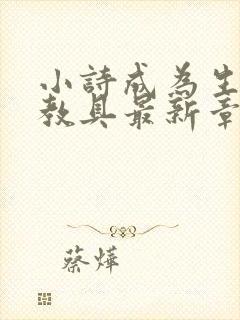 小詩成為生
教具最新章
蔡燁